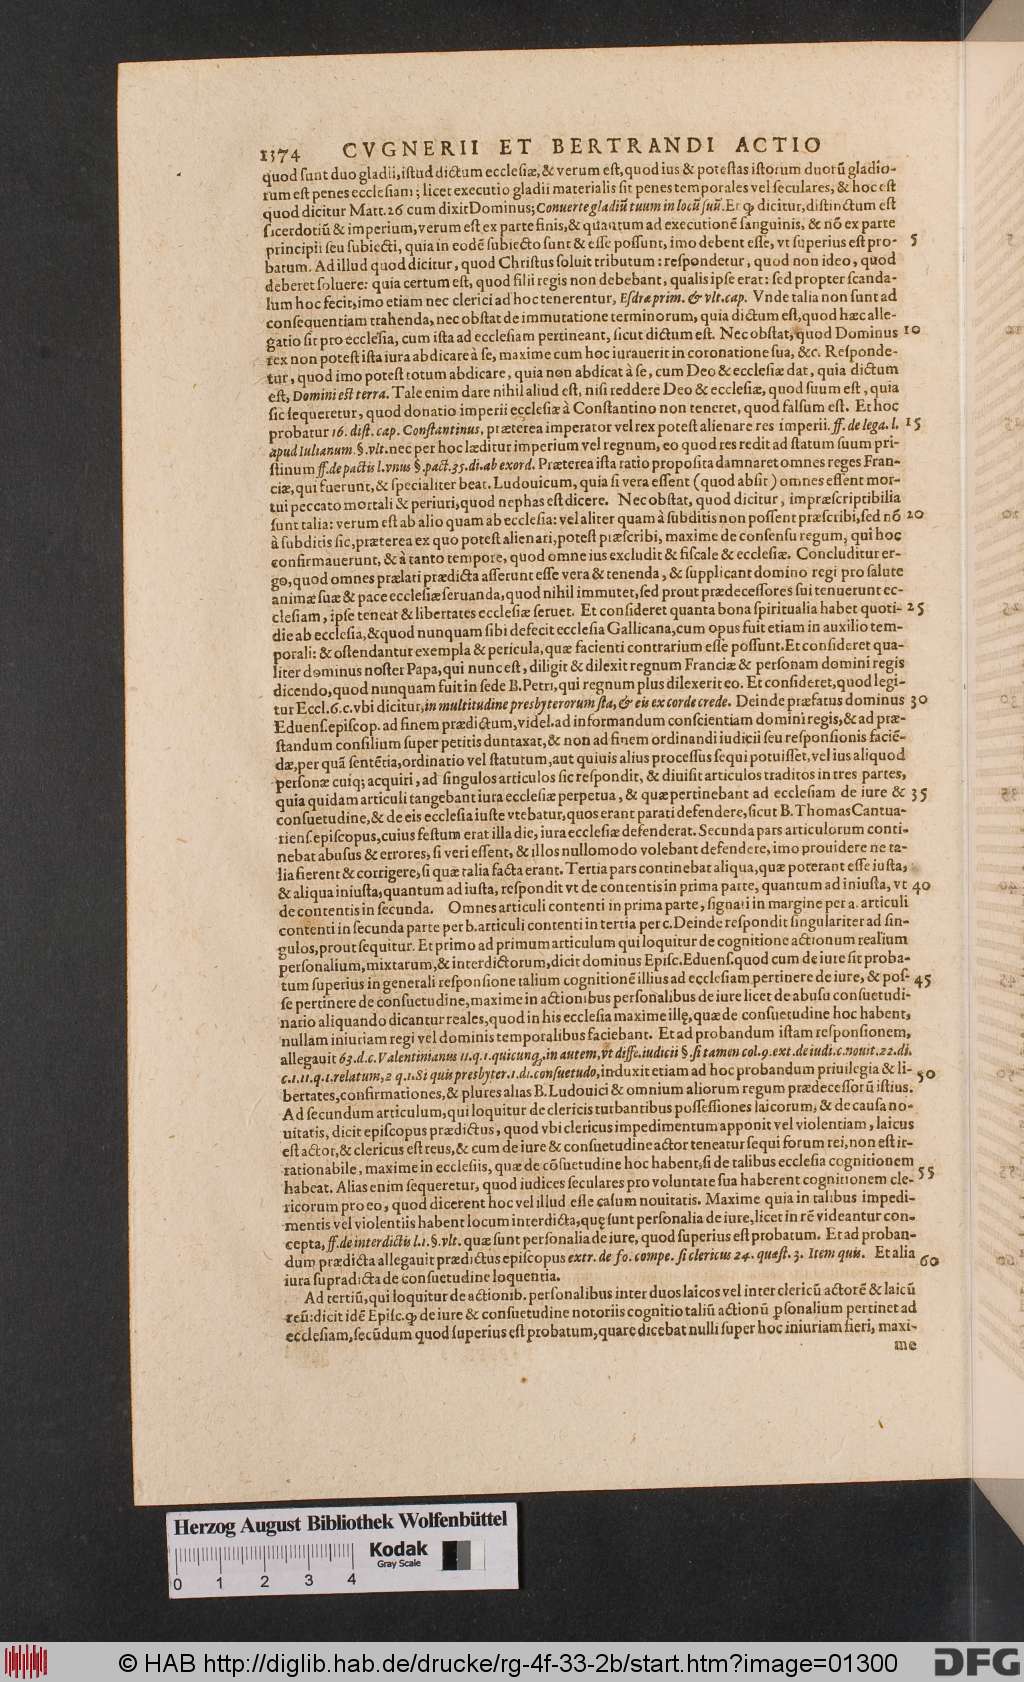 1374 CVGNERII ET BERTRANDI ACTIO
quod ſunt duo gladii, iſtud dictum eccleſiæ, & verum eſt, quod ius & poteſtas iſtorum duorũ gladio-
rum eſt penes eccleſiam; licet executio gladii materialis ſit penes temporales vel ſeculares, & hoc eſt
quod dicitur Matt. 26 cum dixit Dominus; Conuerte gladiũ tuum in locũ ſuũ. Et ꝙ dicitur, diſtinctum eſt
ſacerdotiũ & imperium, verum eſt ex parte finis, & quantum ad executionẽ ſanguinis, & nõ ex parte
principii ſeu ſubiecti, quia in eodẽ ſubiecto ſunt & eſſe poſſunt, imo debent eſſe, vt ſuperius eſt pro- 5
batum. Ad illud quod dicitur, quod Chriſtus ſoluit tributum: reſpondetur, quod non ideo, quod
deberet ſoluere: quia certum eſt, quod filii regis non debebant, qualis ipſe erat: ſed propter ſcanda-
lum hoc fecit, imo etiam nec clerici ad hoc tenerentur, Eſdræ prim. & vlt. cap. Vnde talia non ſunt ad
conſequentiam trahenda, nec obſtat de immutatione terminorum, quia dictum eſt, quod hæc alle-
gatio ſit pro eccleſia, cum iſta ad eccleſiam pertineant, ſicut dictum eſt. Nec obſtat, quod Dominus 10
rex non poteſt iſta iura abdicare à ſe, maxime cum hoc iurauerit in coronatione ſua, &c. Reſponde-
tur, quod imo poteſt totum abdicare, quia non abdicat à ſe, cum Deo & eccleſiæ dat, quia dictum
eſt, Domini eſt terra. Tale enim dare nihil aliud eſt, niſi reddere Deo & eccleſiæ, quod ſuum eſt, quia
ſic ſequeretur, quod donatio imperii eccleſiæ à Conſtantino non teneret, quod falſum eſt. Et hoc
probatur 16. diſt. cap. Conſtantinus, præterea imperator vel rex poteſt alienare res imperii. ff. de lega. l. 15
apud Iulianum. §. vlt. nec per hoc læditur imperium vel regnum, eo quod res redit ad ſtatum ſuum pri-
ſtinum ff. de pactis l. vnus §. pact. 35. di. ab exord. Præterea iſta ratio propoſita damnaret omnes reges Fran-
ciæ, qui fuerunt, & ſpecialiter beat. Ludouicum, quia ſi vera eſſent (quod abſit) omnes eſſent mor-
tui peccato mortali & periuri, quod nephas eſt dicere. Nec obſtat, quod dicitur, impræſcriptibilia
ſunt talia: verum eſt ab alio quam ab eccleſia: vel aliter quam à ſubditis non poſſent præſcribi, ſed nõ 20
à ſubditis ſic, præterea ex quo poteſt alienari, poteſt præſcribi, maxime de conſenſu regum, qui hoc
confirmauerunt, & à tanto tempore, quod omne ius excludit & fiſcale & eccleſiæ. Concluditur er-
go, quod omnes prælati prædicta aſſerunt eſſe vera & tenenda, & ſupplicant domino regi pro ſalute
animæ ſuæ & pace eccleſiæ ſeruanda, quod nihil immutet, ſed prout prædeceſſores ſui tenuerunt ec-
cleſiam, ipſe teneat & libertates eccleſiæ ſeruet. Et conſideret quanta bona ſpiritualia habet quoti- 25
die ab eccleſia, & quod nunquam ſibi defecit eccleſia Gallicana, cum opus fuit etiam in auxilio tem-
porali: & oſtendantur exempla & pericula, quæ facienti contrarium eſſe poſſunt. Et conſideret qua-
liter dominus noſter Papa, qui nunc eſt, diligit & dilexit regnum Franciæ & perſonam domini regis
dicendo, quod nunquam fuit in ſede B. Petri, qui regnum plus dilexerit eo. Et conſideret, quod legi-
tur Eccl. 6. c. vbi dicitur, in multitudine presbyterorum ſta, & eis ex corde crede. Deinde præfatus dominus 30
Eduenſ. epiſcop. ad finem prædictum, videl. ad informandum conſcientiam domini regis, & ad præ-
ſtandum conſilium ſuper petitis duntaxat, & non ad finem ordinandi iudicii ſeu reſponſionis faciẽ-
dæ, per quã ſentẽtia, ordinatio vel ſtatutum, aut quiuis alius proceſſus ſequi potuiſſet, vel ius aliquod
perſonæ cuiq; acquiri, ad ſingulos articulos ſic reſpondit, & diuiſit articulos traditos in tres partes,
quia quidam articuli tangebant iura eccleſiæ perpetua, & quæ pertinebant ad eccleſiam de iure & 35
conſuetudine, & de eis eccleſia iuſte vtebatur, quos erant parati defendere, ſicut B. Thomas Cantua-
rienſ. epiſcopus, cuius feſtum erat illa die, iura eccleſiæ defenderat. Secunda pars articulorum conti-
nebat abuſus & errores, ſi veri eſſent, & illos nullo modo volebant defendere, imo prouidere ne ta-
lia fierent & corrigere, ſi quæ talia facta erant. Tertia pars continebat aliqua, quæ poterant eſſe iuſta,
& aliqua iniuſta, quantum ad iuſta, reſpondit vt de contentis in prima parte, quantum ad iniuſta, vt 40
de contentis in ſecunda. Omnes articuli contenti in prima parte, ſignati in margine per a. articuli
contenti in ſecunda parte per b. articuli contenti in tertia per c. Deinde reſpondit ſingulariter ad ſin-
gulos, prout ſequitur. Et primo ad primum articulum qui loquitur de cognitione actionum realium
perſonalium, mixtarum, & interdictorum, dicit dominus Epiſc. Eduenſ. quod cum de iure ſit proba-
tum ſuperius in generali reſponſione talium cognitionẽ illius ad eccleſiam pertinere de iure, & poſ- 45
ſe pertinere de conſuetudine, maxime in actionibus perſonalibus de iure licet de abuſu conſuetudi-
nario aliquando dicantur reales, quod in his eccleſia maxime illę, quæ de conſuetudine hoc habent,
nullam iniuriam regi vel dominis temporalibus faciebant. Et ad probandum iſtam reſponſionem,
allegauit 63. d. c. Valentinianus 11. q. 1. quicunq;, in autem, vt diffe. iudicii §. ſi tamen col. 9. ext. de iudi. c. nouit. 22. di.
c. 1. 11. q. 1. relatum, 2 q. 1. Si quis presbyter. 1. di. conſuetudo, induxit etiam ad hoc probandum priuilegia & li- 50
bertates, confirmationes, & plures alias B. Ludouici & omnium aliorum regum prædeceſſorũ iſtius.
Ad ſecundum articulum, qui loquitur de clericis turbantibus poſſeſſiones laicorum, & de cauſa no-
uitatis, dicit epiſcopus prædictus, quod vbi clericus impedimentum apponit vel violentiam, laicus
eſt actor, & clericus eſt reus, & cum de iure & conſuetudine actor teneatur ſequi forum rei, non eſt ir-
rationabile, maxime in eccleſiis, quæ de cõſuetudine hoc habent, ſi de talibus eccleſia cognitionem
habeat. Alias enim ſequeretur, quod iudices ſeculares pro voluntate ſua haberent cognitionem cle- 55
ricorum pro eo, quod dicerent hoc vel illud eſſe caſum nouitatis. Maxime quia in talibus impedi-
mentis vel violentiis habent locum interdicta, quę ſunt perſonalia de iure, licet in rẽ videantur con-
cepta, ff. de interdictis l. 1. §. vlt. quæ ſunt perſonalia de iure, quod ſuperius eſt probatum. Et ad proban-
dum prædicta allegauit prædictus epiſcopus extr. de fo. compe. ſi clericus 24. quæſt. 3. Item quis. Et alia 60
iura ſupradicta de conſuetudine loquentia.
Ad tertiũ, qui loquitur de actionib. perſonalibus inter duos laicos vel inter clericũ actorẽ & laicũ
reũ: dicit idẽ Epiſc. ꝙ de iure & conſuetudine notoriis cognitio taliũ actionũ ꝑſonalium pertinet ad
eccleſiam, ſecũdum quod ſuperius eſt probatum, quare dicebat nulli ſuper hoc iniuriam fieri, maxi-
me
Herzog August Bibliothek Wolfenbüttel
Kodak
Gray Scale
0 1 2 3 4
© HAB http://diglib.hab.de/drucke/rg-4f-33-2b/start.htm?image=01300
DFG